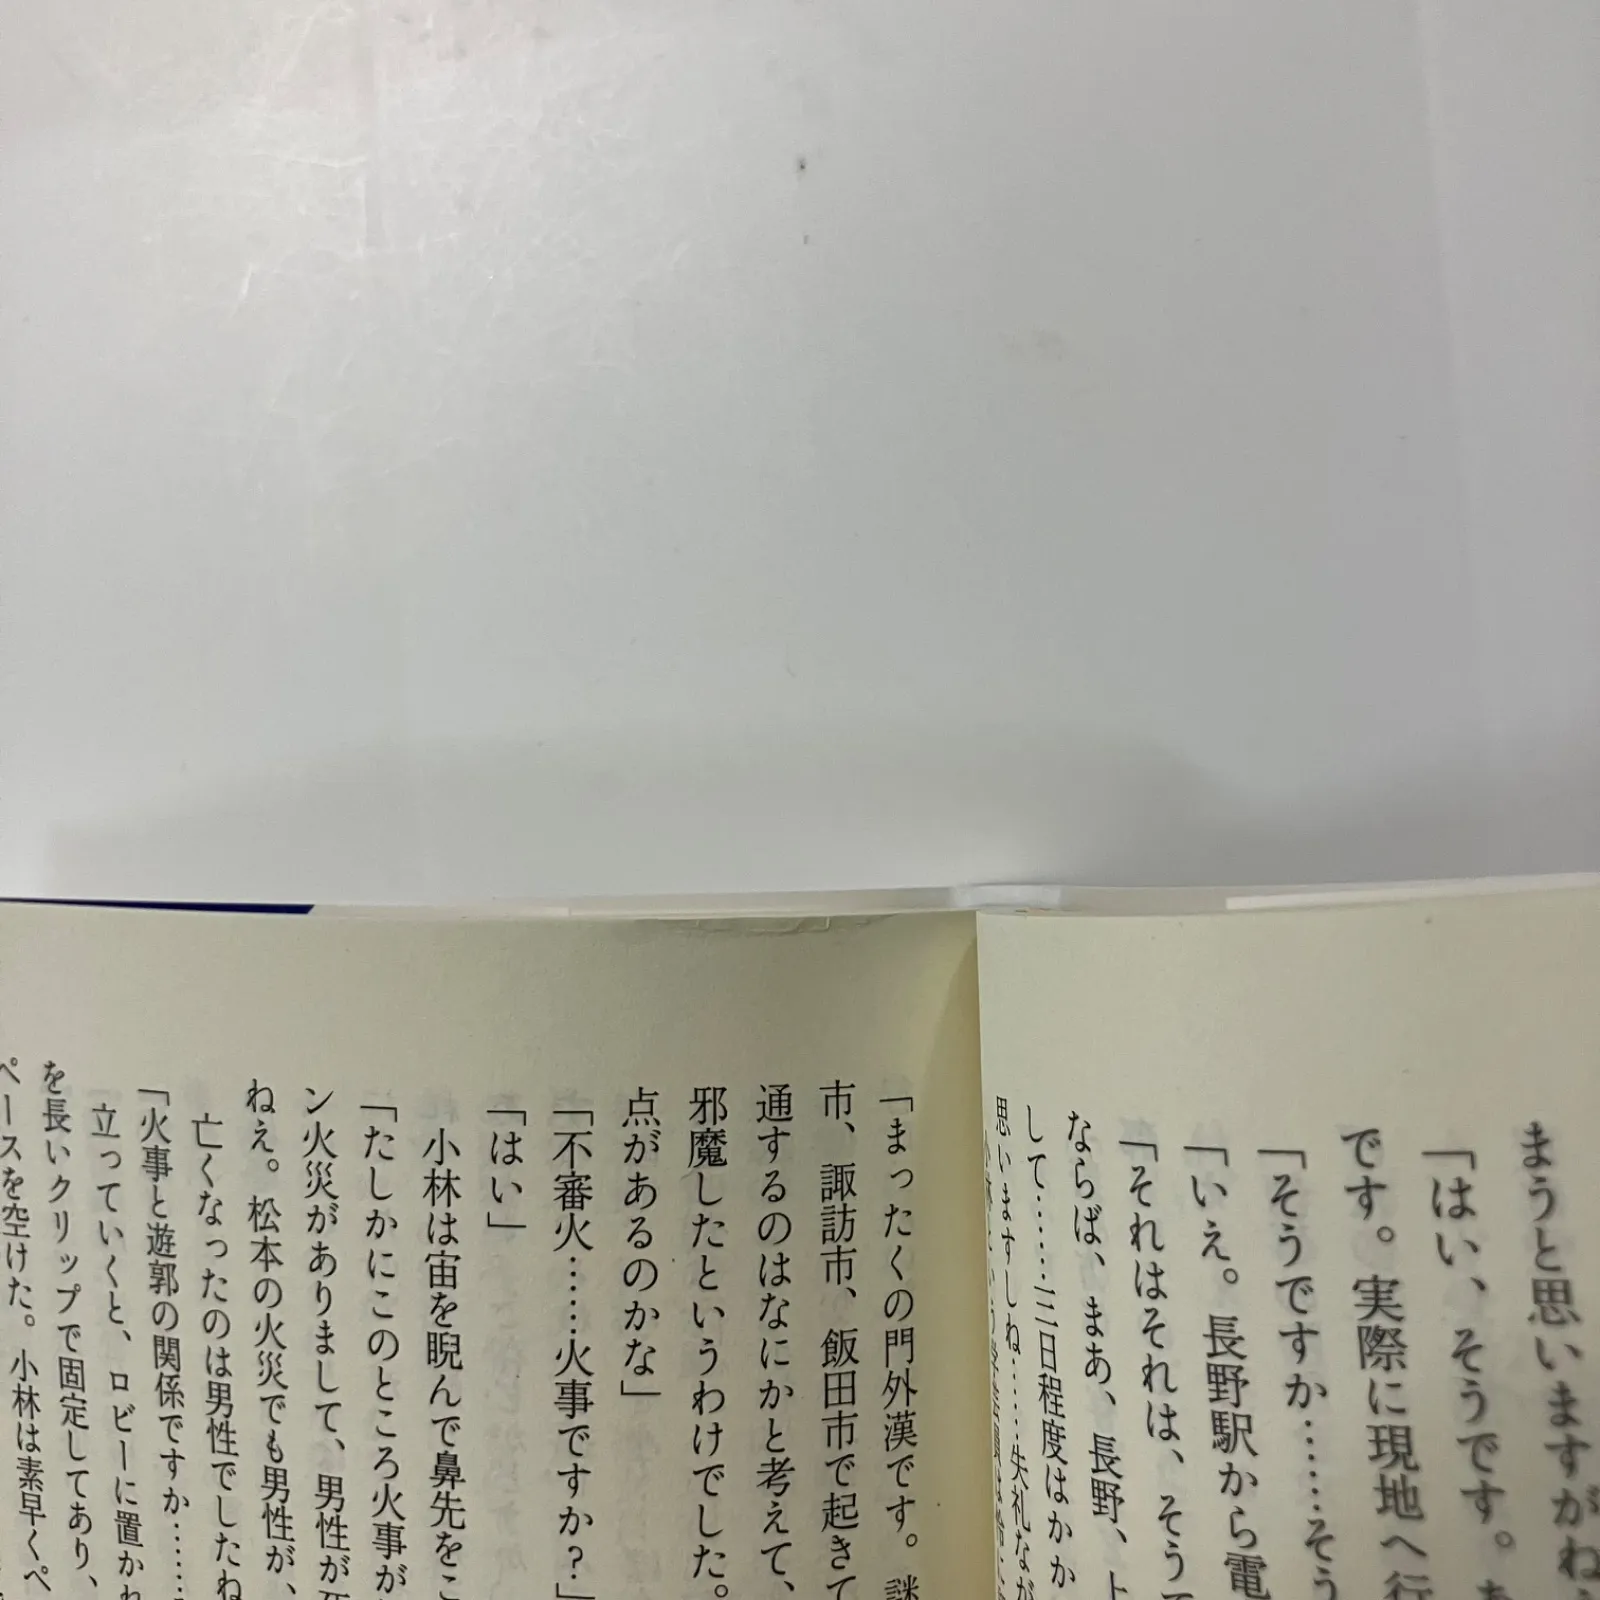 まうと思いますがね
「はい、そうです。
です。実際に現地へ行
「そうですか……そう
「いえ。長野駅から電
「それはそれは、そう
ならば、まあ、長野、上
して……三日程度はかか
思いますしね……失礼なが
「まったくの門外漢です。謎
市、諏訪市、飯田市で起きて
通するのはなにかと考えて、
邪魔したというわけでした。
点があるのかな」
「不審火……火事ですか?」
「はい」
小林は宙を睨んで鼻先をこ
「たしかにこのところ火事が
ン火災がありまして、男性が
ねえ。松本の火災でも男性が、
亡くなったのは男性でしたね
「火事と遊郭の関係ですか……
立っていくと、ロビーに置かれ
を長いクリップで固定してあり、
ペースを空けた。小林は素早くペ